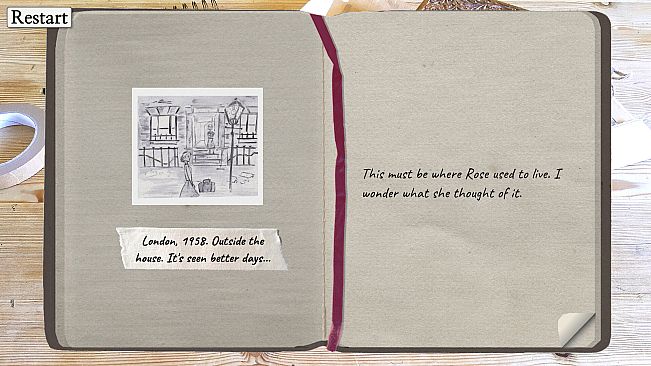 Restart
London, 1958. Outside the
house. It's seen better days...
This must be where Rose used to live. I
wonder what she thought of it.